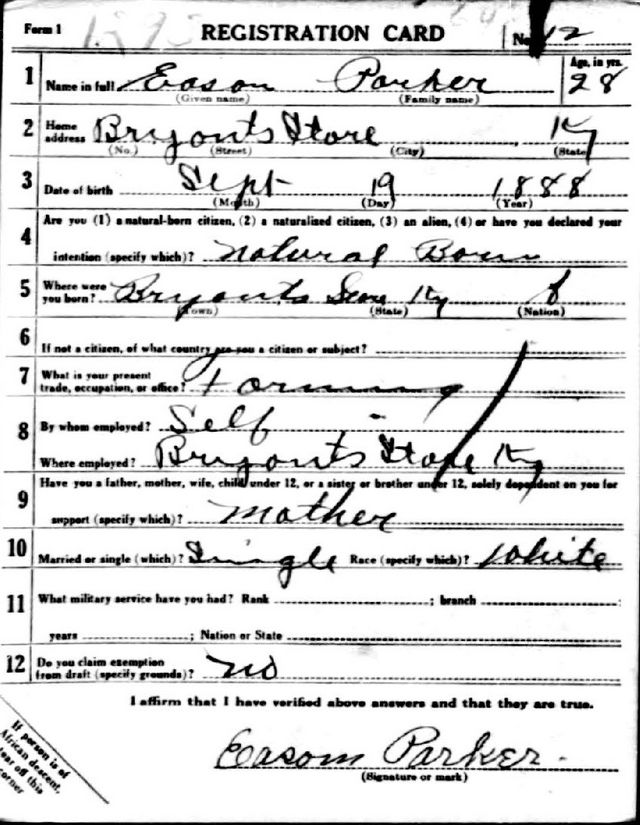 Form 1 REGISTRATION CARD No. 12
1 Name in full Eason Parker Age, in yrs. 28
(Given name) (Family name)
2 Home address Bryants Store, Ky
(No.) (Street) (City) (State)
3 Date of birth Sept 19 1888
(Month) (Day) (Year)
4 Are you (1) a natural-born citizen, (2) a naturalized citizen, (3) an alien, (4) or have you declared your
intention (specify which)? Natural Born
5 Where were you born? Bryants Store Ky
(Town) (State) (Nation)
6 If not a citizen, of what country are you a citizen or subject?
7 What is your present trade, occupation, or office? Farming
8 By whom employed? Self
Where employed? Bryants Store Ky
9 Have you a father, mother, wife, child under 12, or a sister or brother under 12, solely dependent on you for
support (specify which)? Mother
10 Married or single (which)? Single Race (specify which)? White
11 What military service have you had? Rank ; branch
years ; Nation or State
12 Do you claim exemption from draft (specify grounds)? No
I affirm that I have verified above answers and that they are true.
Easom Parker
(Signature or mark)
If person is of
African descent,
tear off this
corner